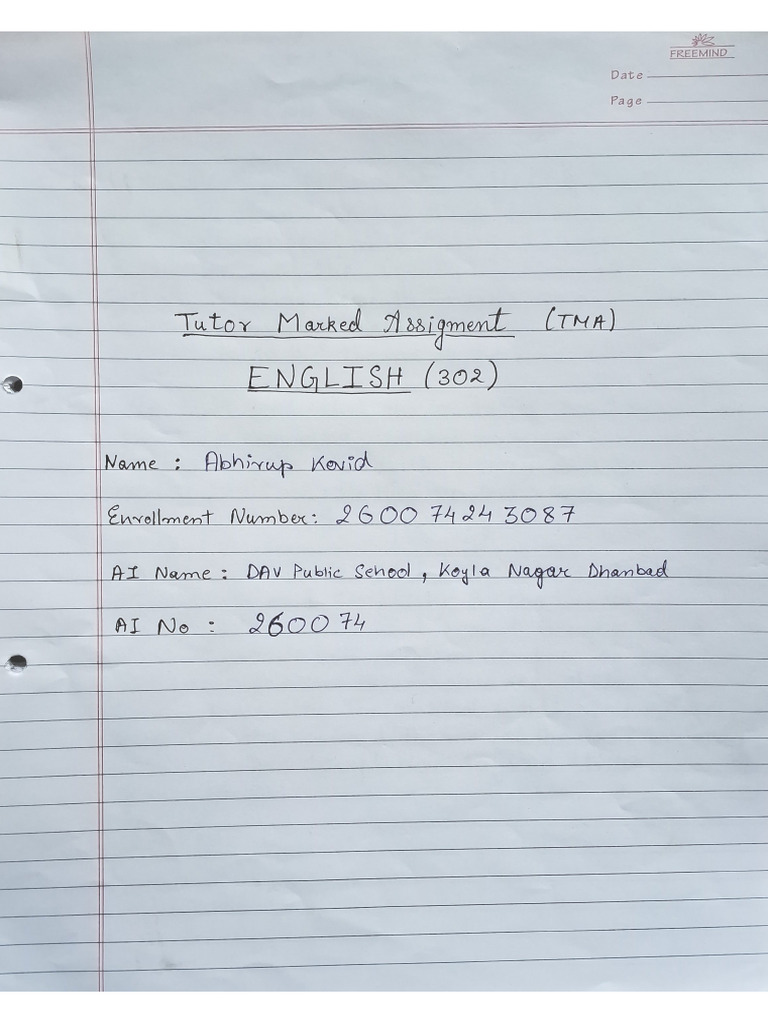 FREEMIND
Date
Page
Tutor Marked Assigment (TMA)
ENGLISH (302)
Name : Abhirup Kovid
Enrollment Number: 260074243087
AI Name : DAV Public School, Koyla Nagar Dhanbad
AI No : 260074